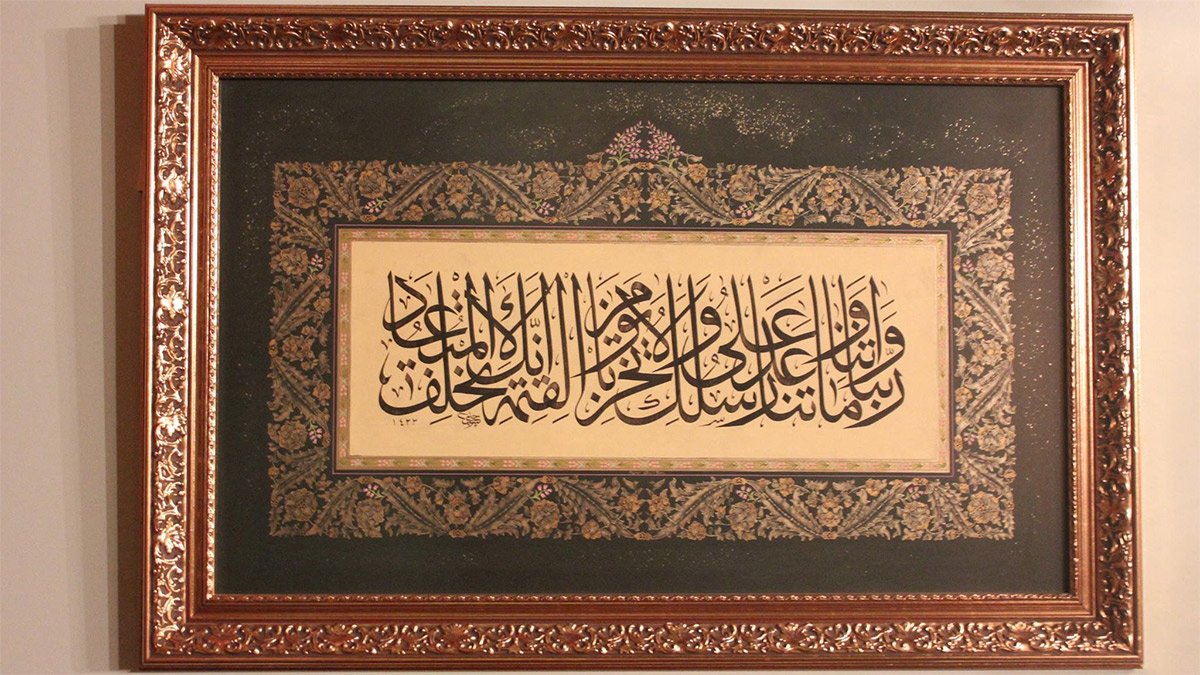 ربنا واتنا ما وعدتنا على رسلك ولا تخزنا يوم القيمة انك لا تخلف الميعاد